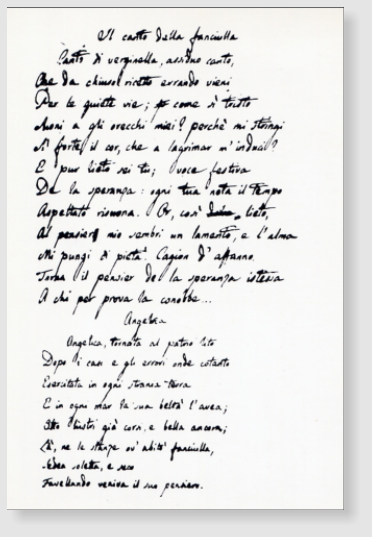 Il canto della fanciulla
Canto di verginella, assiduo canto,
Che da chiuso ricetto errando vieni
Per le quiete vie; come sì tristo
Suoni a gli orecchi miei? perchè mi stringi
Sì forte il cor, che a lagrimar m'induci?
E pur lieto sei tu; voce festiva
De la speranza: ogni tua nota il tempo
Aspettato risuona. Or, così lieto,
Al pensier mio sembri un lamento, e l'alma
Mi pungi di pietà. Cagion d'affanno
Torna il pensier de la speranza istessa
A chi per prova la conobbe...
Angelica
Angelica, tornata al patrio lito
Dopo i casi e gli errori onde cotanto
Esercitata in ogni strania terra
E in ogni mar la sua beltà l'avea;
Otto lustri già corsi, e bella ancora;
Là, ne le stanze ov' abitò fanciulla,
Sedea soletta, e seco
Favellando veniva il suo pensiero.